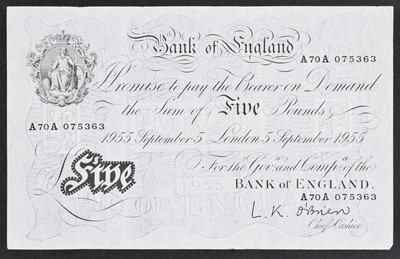 Bank of England
A70A 075363
I Promise to pay the Bearer on Demand
the Sum of Five Pounds
A70A 075363
1955 September 5 London 5 September 1955
For the Govr. and Compa. of the
Five
BANK OF ENGLAND.
A70A 075363
L. K. O'Brien
Chief Cashier.